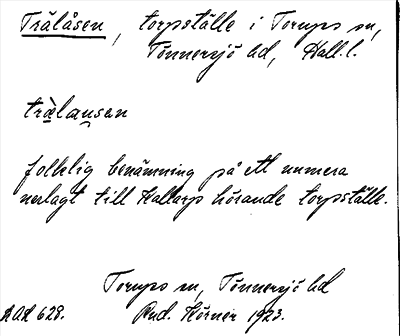 Trälåsen, torpställe i Torups sn,
Tönnersjö hd, Hall. l.
trä̀lau̯sen
folklig benämning på ett numera
nerlagt till Hallarp hörande torpställe.
Torups sn, Tönnersjö hd
AOH 628. Rud. Körner 1923.